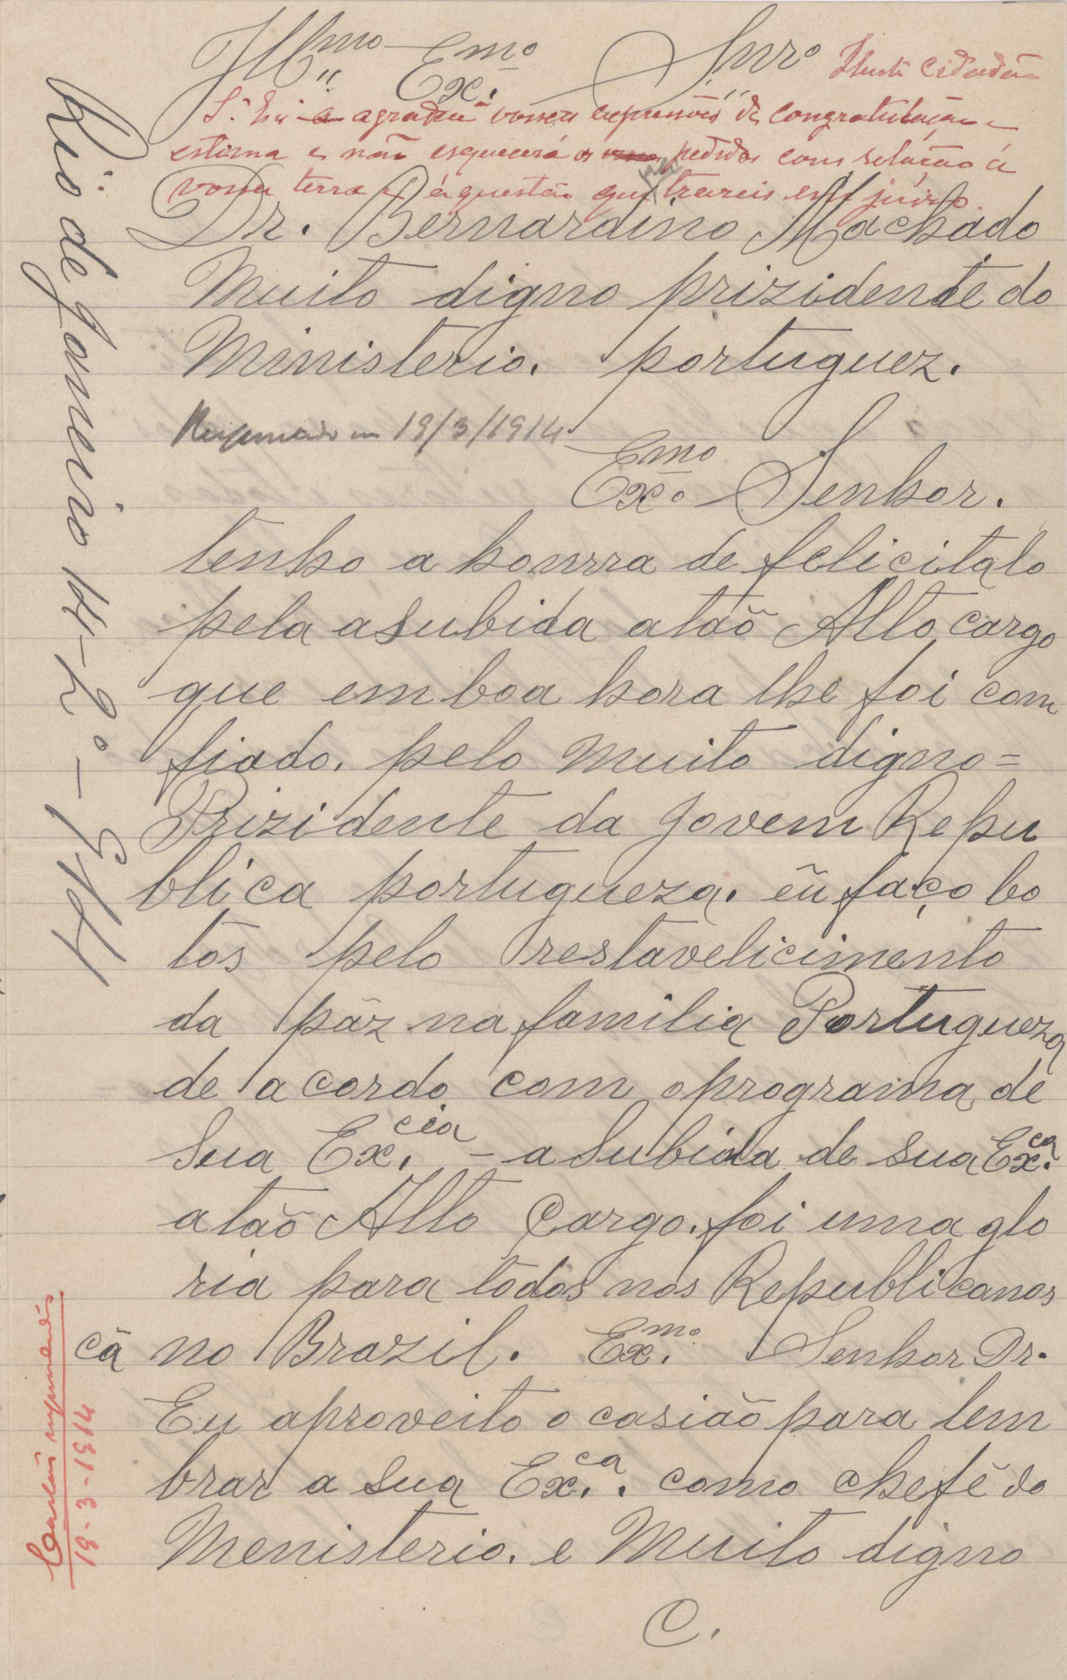 Ill.mo Ex.mo Snr.o
Ilustre cidadão
S. Ex.ia agradece vossas expressões de congratulação e
estima e não esquecerá os pedidos com relação á
vossa terra e á questão que trazeis em juizo.
Dr. Bernardino Machado
Muito digno prizidente do
Ministerio. portuguez.
Respondido em 19/3/1914
Ex.mo Senhor.
tenho a honrra de felicitalo
pela asubida ataõ Alto cargo
que emboa hora lhe foi com
fiado. pelo Muito digno=
Prizidente da Jovem Repu
blica portugueza. eũ faço bo
tos pelo restavelicimento
da pãz na familia Portugueza
de acordo com oprograma de
Sua Ex.cia - a Subida de sua Ex.ca
ataõ Alto Cargo. foi uma glo
ria para todos nos Republicanos
cã no Brazil. Ex.mo Senhor Dr.
Eu aproveito o casião para lem
brar a Sua Ex.ca. como chefe do
Menisterio. e Muito digno
C.
Rio de Janeiro 14-2.º-914
Cartão respondido
19-3-1914